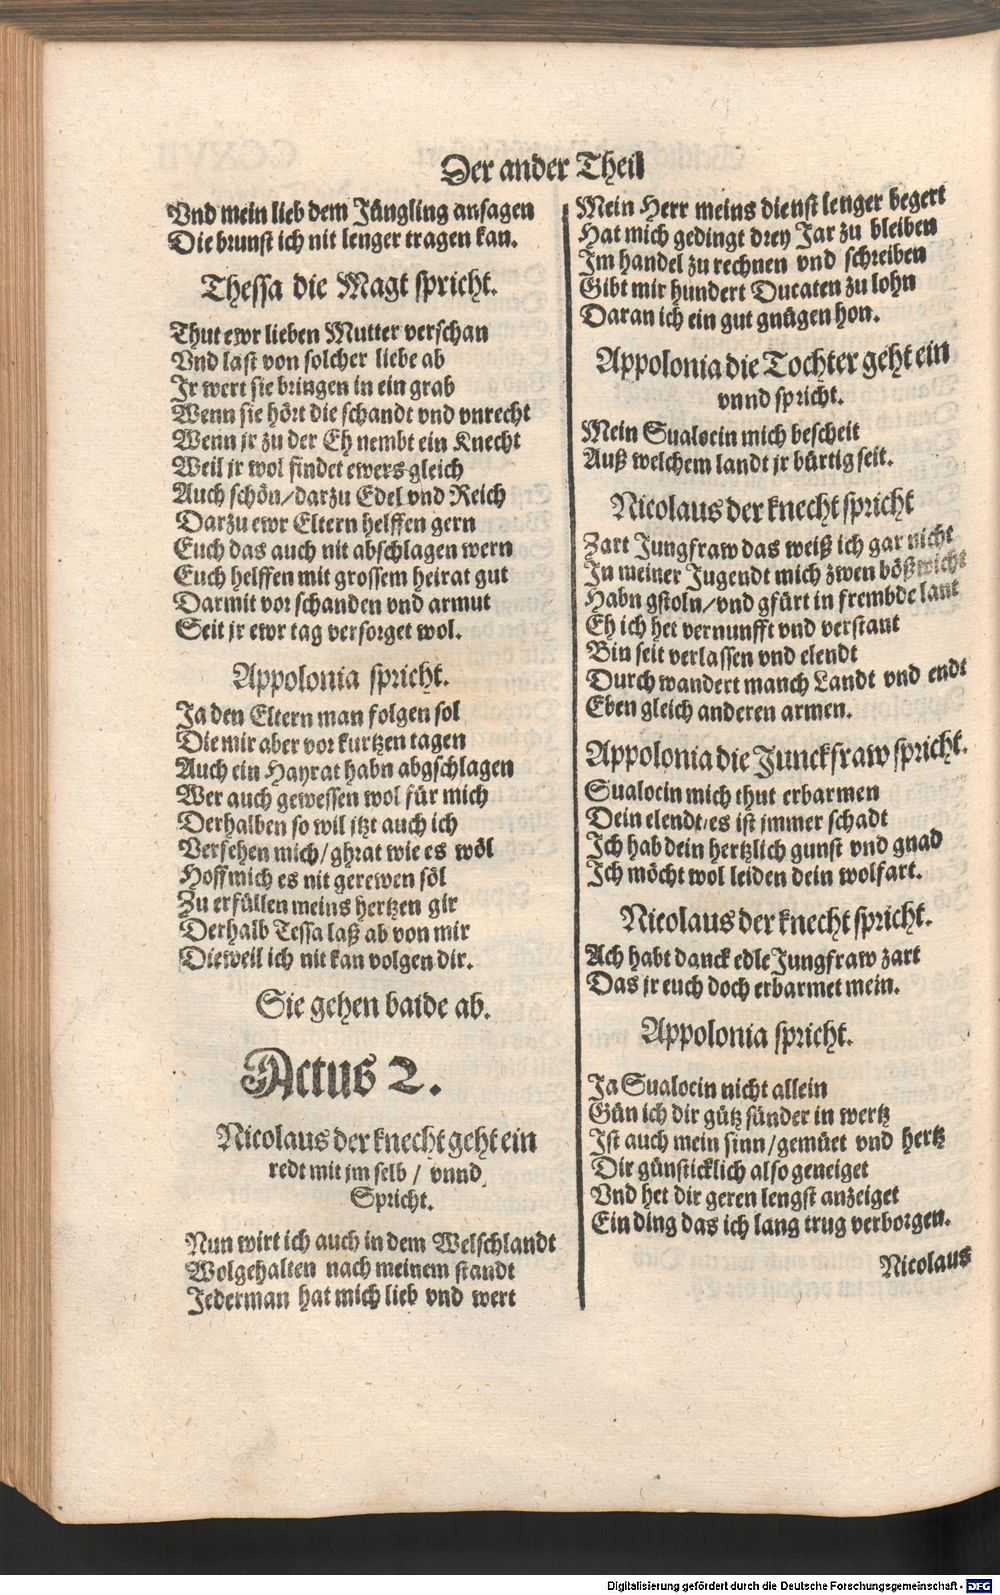 Der ander Theil
Vnd mein lieb dem Jüngling ansagen
Die brunst ich nit lenger tragen kan.
Thessa die Magt spricht.
Thut ewr lieben Mutter verschan
Vnd last von solcher liebe ab
Jr wert sie bringen in ein grab
Wenn sie hört die schandt vnd vnrecht
Wenn jr zu der Eh nembt ein Knecht
Weil jr wol findet ewers gleich
Auch schön/darzu Edel vnd Reich
Darzu ewr Eltern helffen gern
Euch das auch nit abschlagen wern
Euch helffen mit grossem heirat gut
Darmit vor schanden vnd armut
Seit jr ewr tag versorget wol.
Appolonia spricht.
Ja den Eltern man folgen sol
Die mir aber vor kurtzen tagen
Auch ein Hayrat habn abgschlagen
Wer auch gewessen wol für mich
Derhalben so wil jtzt auch ich
Versehen mich/ghrat wie es wöl
Hoff mich es nit gerewen söl
Zu erfüllen meins hertzen gir
Derhalb Tessa laß ab von mir
Dieweil ich nit kan volgen dir.
Sie gehen baide ab.
Actus 2.
Nicolaus der knecht geht ein
redt mit jm selb / vnnd
Spricht.
Nun wirt ich auch in dem Welschlandt
Wolgehalten nach meinem standt
Jederman hat mich lieb vnd wert
Mein Herr meins dienst lenger begert
Hat mich gedingt drey Jar zu bleiben
Jm handel zu rechnen vnd schreiben
Gibt mir hundert Ducaten zu lohn
Daran ich ein gut gnügen hon.
Appolonia die Tochter geht ein
vnnd spricht.
Mein Sualocin mich bescheit
Auß welchem landt jr bürtig seit.
Nicolaus der knecht spricht
Zart Jungfraw das weiß ich gar nicht
Jn meiner Jugendt mich zwen bößwicht
Habn gstoln/vnd gfürt in frembde lant
Eh ich het vernunfft vnd verstant
Bin seit verlassen vnd elendt
Durch wandert manch Landt vnd endt
Eben gleich anderen armen.
Appolonia die Junckfraw spricht.
Sualocin mich thut erbarmen
Dein elendt/es ist jmmer schadt
Jch hab dein hertzlich gunst vnd gnad
Jch möcht wol leiden dein wolfart.
Nicolaus der knecht spricht.
Ach habt danck edle Jungfraw zart
Das jr euch doch erbarmet mein.
Appolonia spricht.
Ja Sualocin nicht allein
Gün ich dir gütz sünder in wertz
Jst auch mein sinn/gemüet vnd hertz
Dir günsticklich also geneiget
Vnd het dir geren lengst anzeiget
Ein ding das ich lang trug verborgen.
Nicolaus
Digitalisierung gefördert durch die Deutsche Forschungsgemeinschaft - DFG